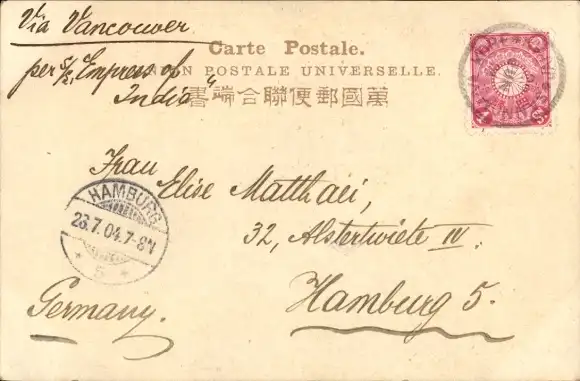 Via Vancouver
per S/S "Empress of
India"
Carte Postale.
UNION POSTALE UNIVERSELLE.
書端合聯便郵國萬
4 Sn
Frau Elise Matthaei,
32, Alstertwiete IV.
Hamburg 5.
Germany.
HAMBURG
23.7.04.7-8N
* 5 *